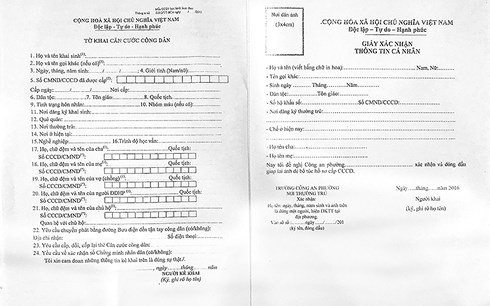 CỘNG HÒA XÃ HỘI CHỦ NGHĨA VIỆT NAM
Độc lập – Tự do – Hạnh phúc
TỜ KHAI CĂN CƯỚC CÔNG DÂN
1. Họ và tên khai sinh(1):
2. Họ và tên gọi khác (nếu có)(1):
3. Ngày, tháng, năm sinh: / / ; 4. Giới tính (Nam/nữ):
5. Số CMND/CCCD đã được cấp(2):
Cấp ngày: / / Nơi cấp:
6. Dân tộc: 7. Tôn giáo: 8. Quốc tịch:
9. Tình trạng hôn nhân: 10. Nhóm máu (nếu có):
11. Nơi đăng ký khai sinh:
12. Quê quán:
13. Nơi thường trú:
14. Nơi ở hiện tại:
15. Nghề nghiệp: 16. Trình độ học vấn:
17. Họ, chữ đệm và tên của cha(1): Quốc tịch:
Số CCCD/CMND(2):
18. Họ, chữ đệm và tên của mẹ(1): Quốc tịch:
Số CCCD/CMND(2):
19. Họ, chữ đệm và tên của vợ (chồng)(1): Quốc tịch:
Số CCCD/CMND(2):
20. Họ, chữ đệm và tên của người ĐDHP(1): Quốc tịch:
Số CCCD/CMND(2):
21. Họ, chữ đệm và tên của chủ hộ(1):
Số CCCD/CMND(2):
Quan hệ với chủ hộ:
22. Yêu cầu chuyển phát bằng đường Bưu điện đến tận tay công dân (có/không):
Địa chỉ nhận: Số điện thoại:
23. Yêu cầu cấp, đổi, cấp lại thẻ Căn cước công dân:
24. Yêu cầu về xác nhận số Chứng minh nhân dân (có/không):
Tôi xin cam đoan những thông tin kê khai trên là đúng sự thật./.
, ngày tháng năm
NGƯỜI KÊ KHAI
(Ký, ghi rõ họ tên)
Nơi dán ảnh
(3x4cm)
CỘNG HÒA XÃ HỘI CHỦ NGHĨA VIỆT NAM
Độc lập – Tự do – Hạnh phúc
GIẤY XÁC NHẬN
THÔNG TIN CÁ NHÂN
- Họ và tên (viết bằng chữ in hoa): Nam, Nữ:
- Tên gọi khác:
- Sinh ngày Tháng Năm
- Dân tộc: Tôn giáo:
- Số hộ khẩu số: Số CMND/CCCD:
- Nơi đăng ký thường trú:
- Chỗ ở hiện nay:
- Họ tên cha:
- Họ tên mẹ:
Nay tôi đề nghị Công an phường xác nhận và đóng dấu
giáp lai ảnh để bổ túc hồ sơ cấp CCCD.
TRƯỞNG CÔNG AN PHƯỜNG
NƠI THƯỜNG TRÚ
Xác nhận:
Họ tên; ngày, tháng, năm sinh và ảnh trên
là đúng một người, hiện ĐKTT tại
địa phương.
Vào sổ số: ngày / /201
(ký tên, đóng dấu)
Ngày tháng năm 2016
Người khai
(ký, ghi rõ họ tên)